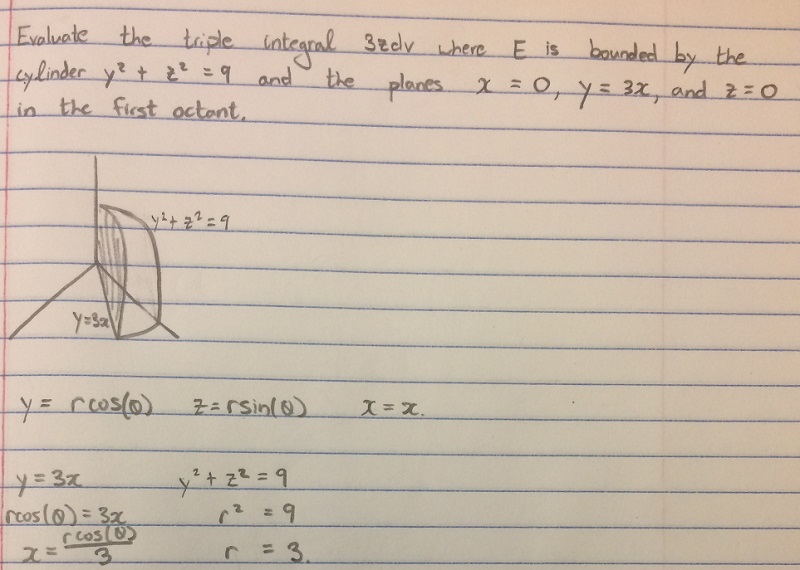 Evaluate the triple integral 3zdv where E is bounded by the
cylinder y² + z² = 9 and the planes x = 0, y = 3x, and z = 0
in the first octant.
y² + z² = 9
y=3x
y = rcos(θ) z = rsin(θ) x = x.
y = 3x y² + z² = 9
rcos(θ) = 3x r² = 9
x = rcos(θ)/3 r = 3.